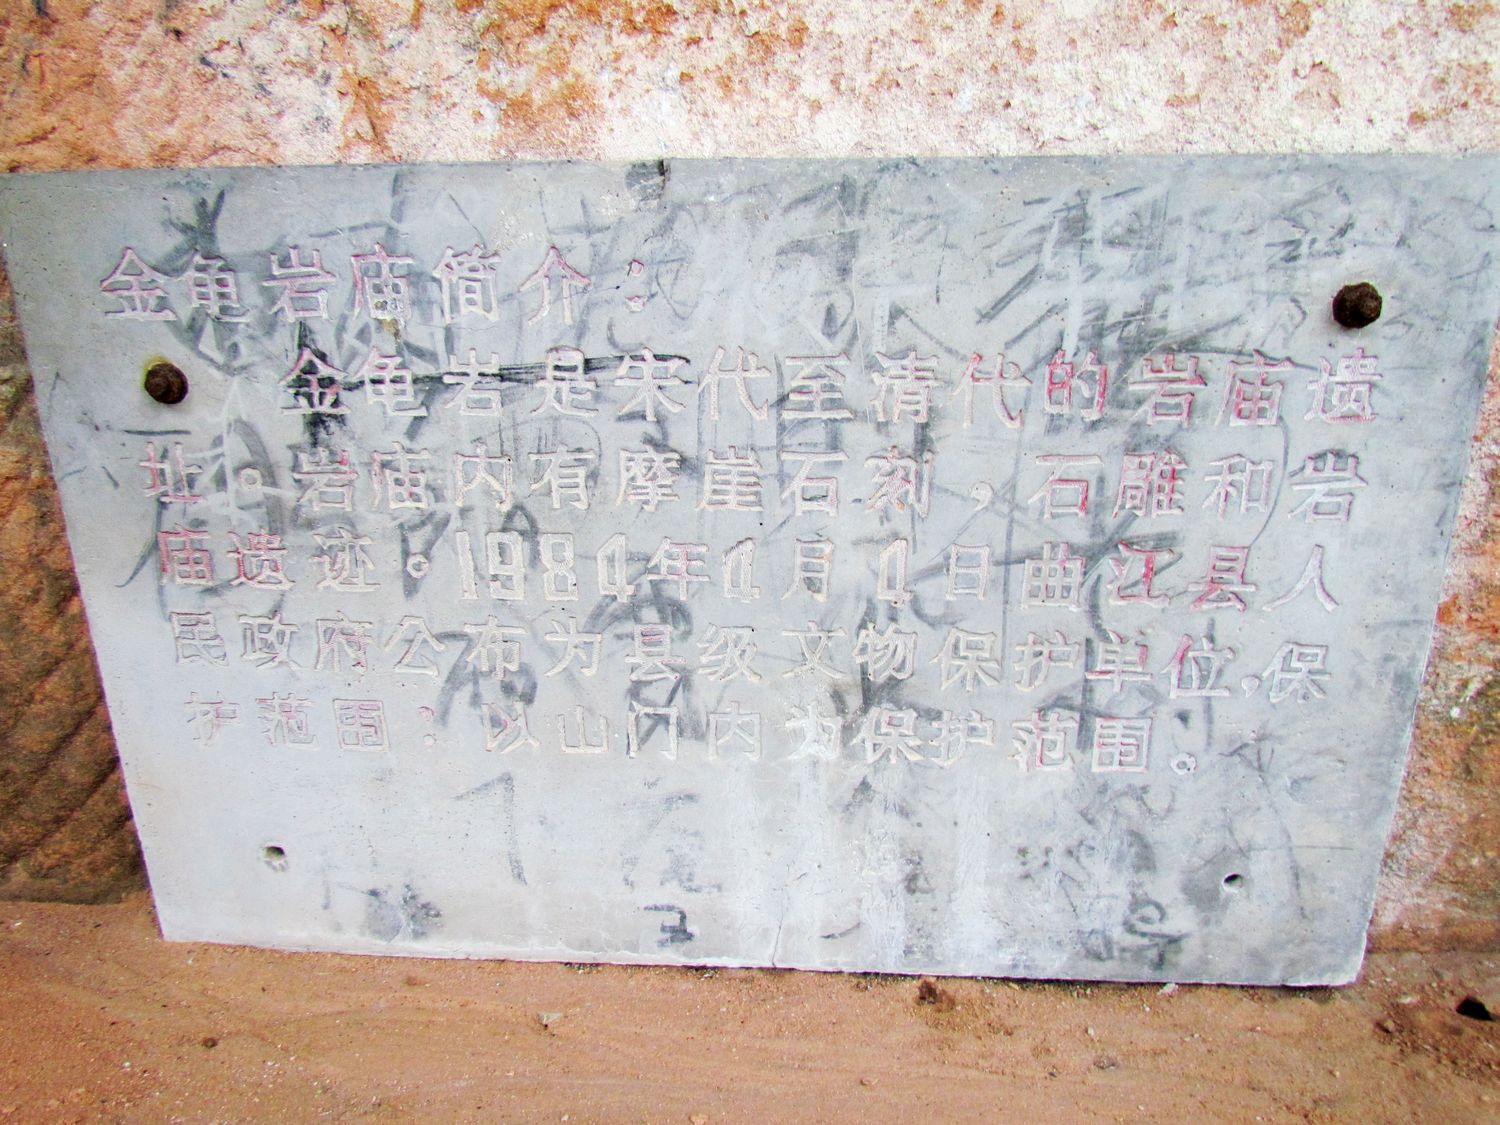 金龟岩庙简介：
金龟岩是宋代至清代的岩庙遗
址。岩庙内有摩崖石刻，石雕和岩
庙遗迹。1984年4月4日曲江县人
民政府公布为县级文物保护单位，保
护范围：以山门内为保护范围。